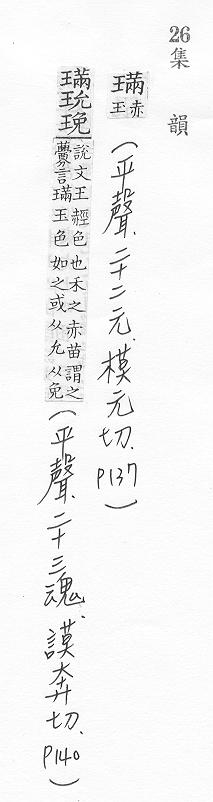 26集 韻
璊
赤
王
(平聲.二十二元.模元切.P137)
璊玧
說文王䞓色也禾之赤苗謂之
虋言璊玉色如之或从允从免
(平聲.二十三魂.謨奔切.P140)